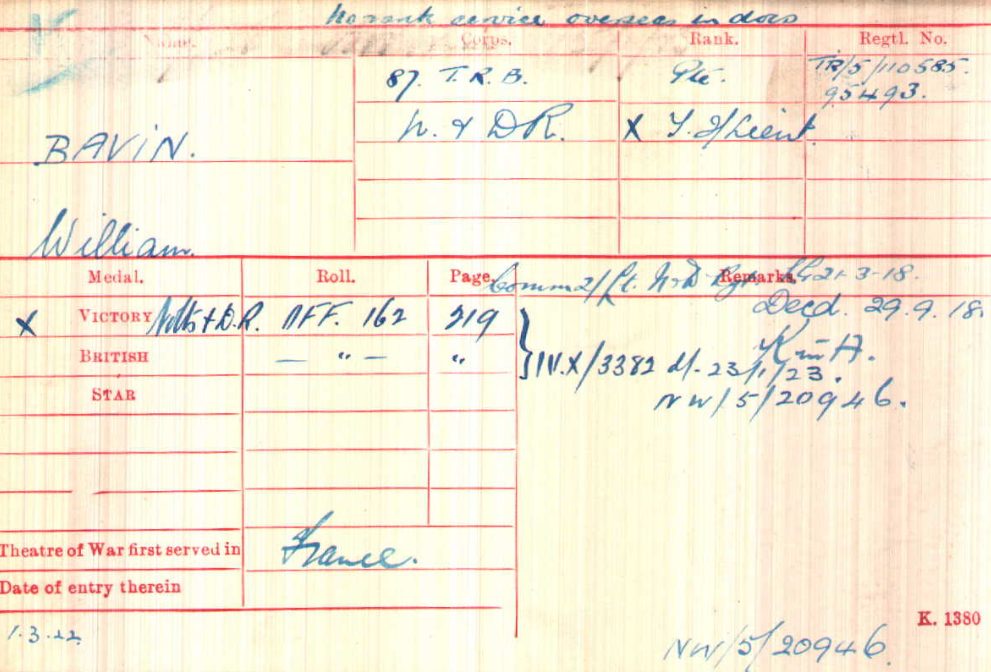 No rank service overseas in docs
Name. Corps. Rank. Regtl. No.
87. T.R.B. Pte. TR/5/110585.
95493.
N. & D R. X T. 2/Lieut.
BAVIN.
William.
Medal. Roll. Page. Remarks.
Comm 2/Lt. N & D Rgt. LG 21-3-18.
X VICTORY Notts & D.R. OFF. 162 219 Decd. 29.9.18.
BRITISH — " — " } IV.X/3382 d/- 23/1/23. K in A.
STAR NW/5/20946.
Theatre of War first served in France.
Date of entry therein
K. 1380
1.3.22
NW/5/20946.